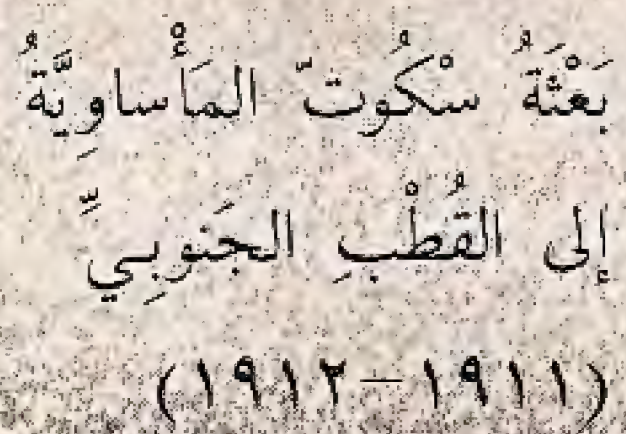 بَعْثَةُ سْكُوتّ المَأْساوِيَّةُ
إلى القُطْبِ الجَنوبِيِّ
(١٩١١-١٩١٢)